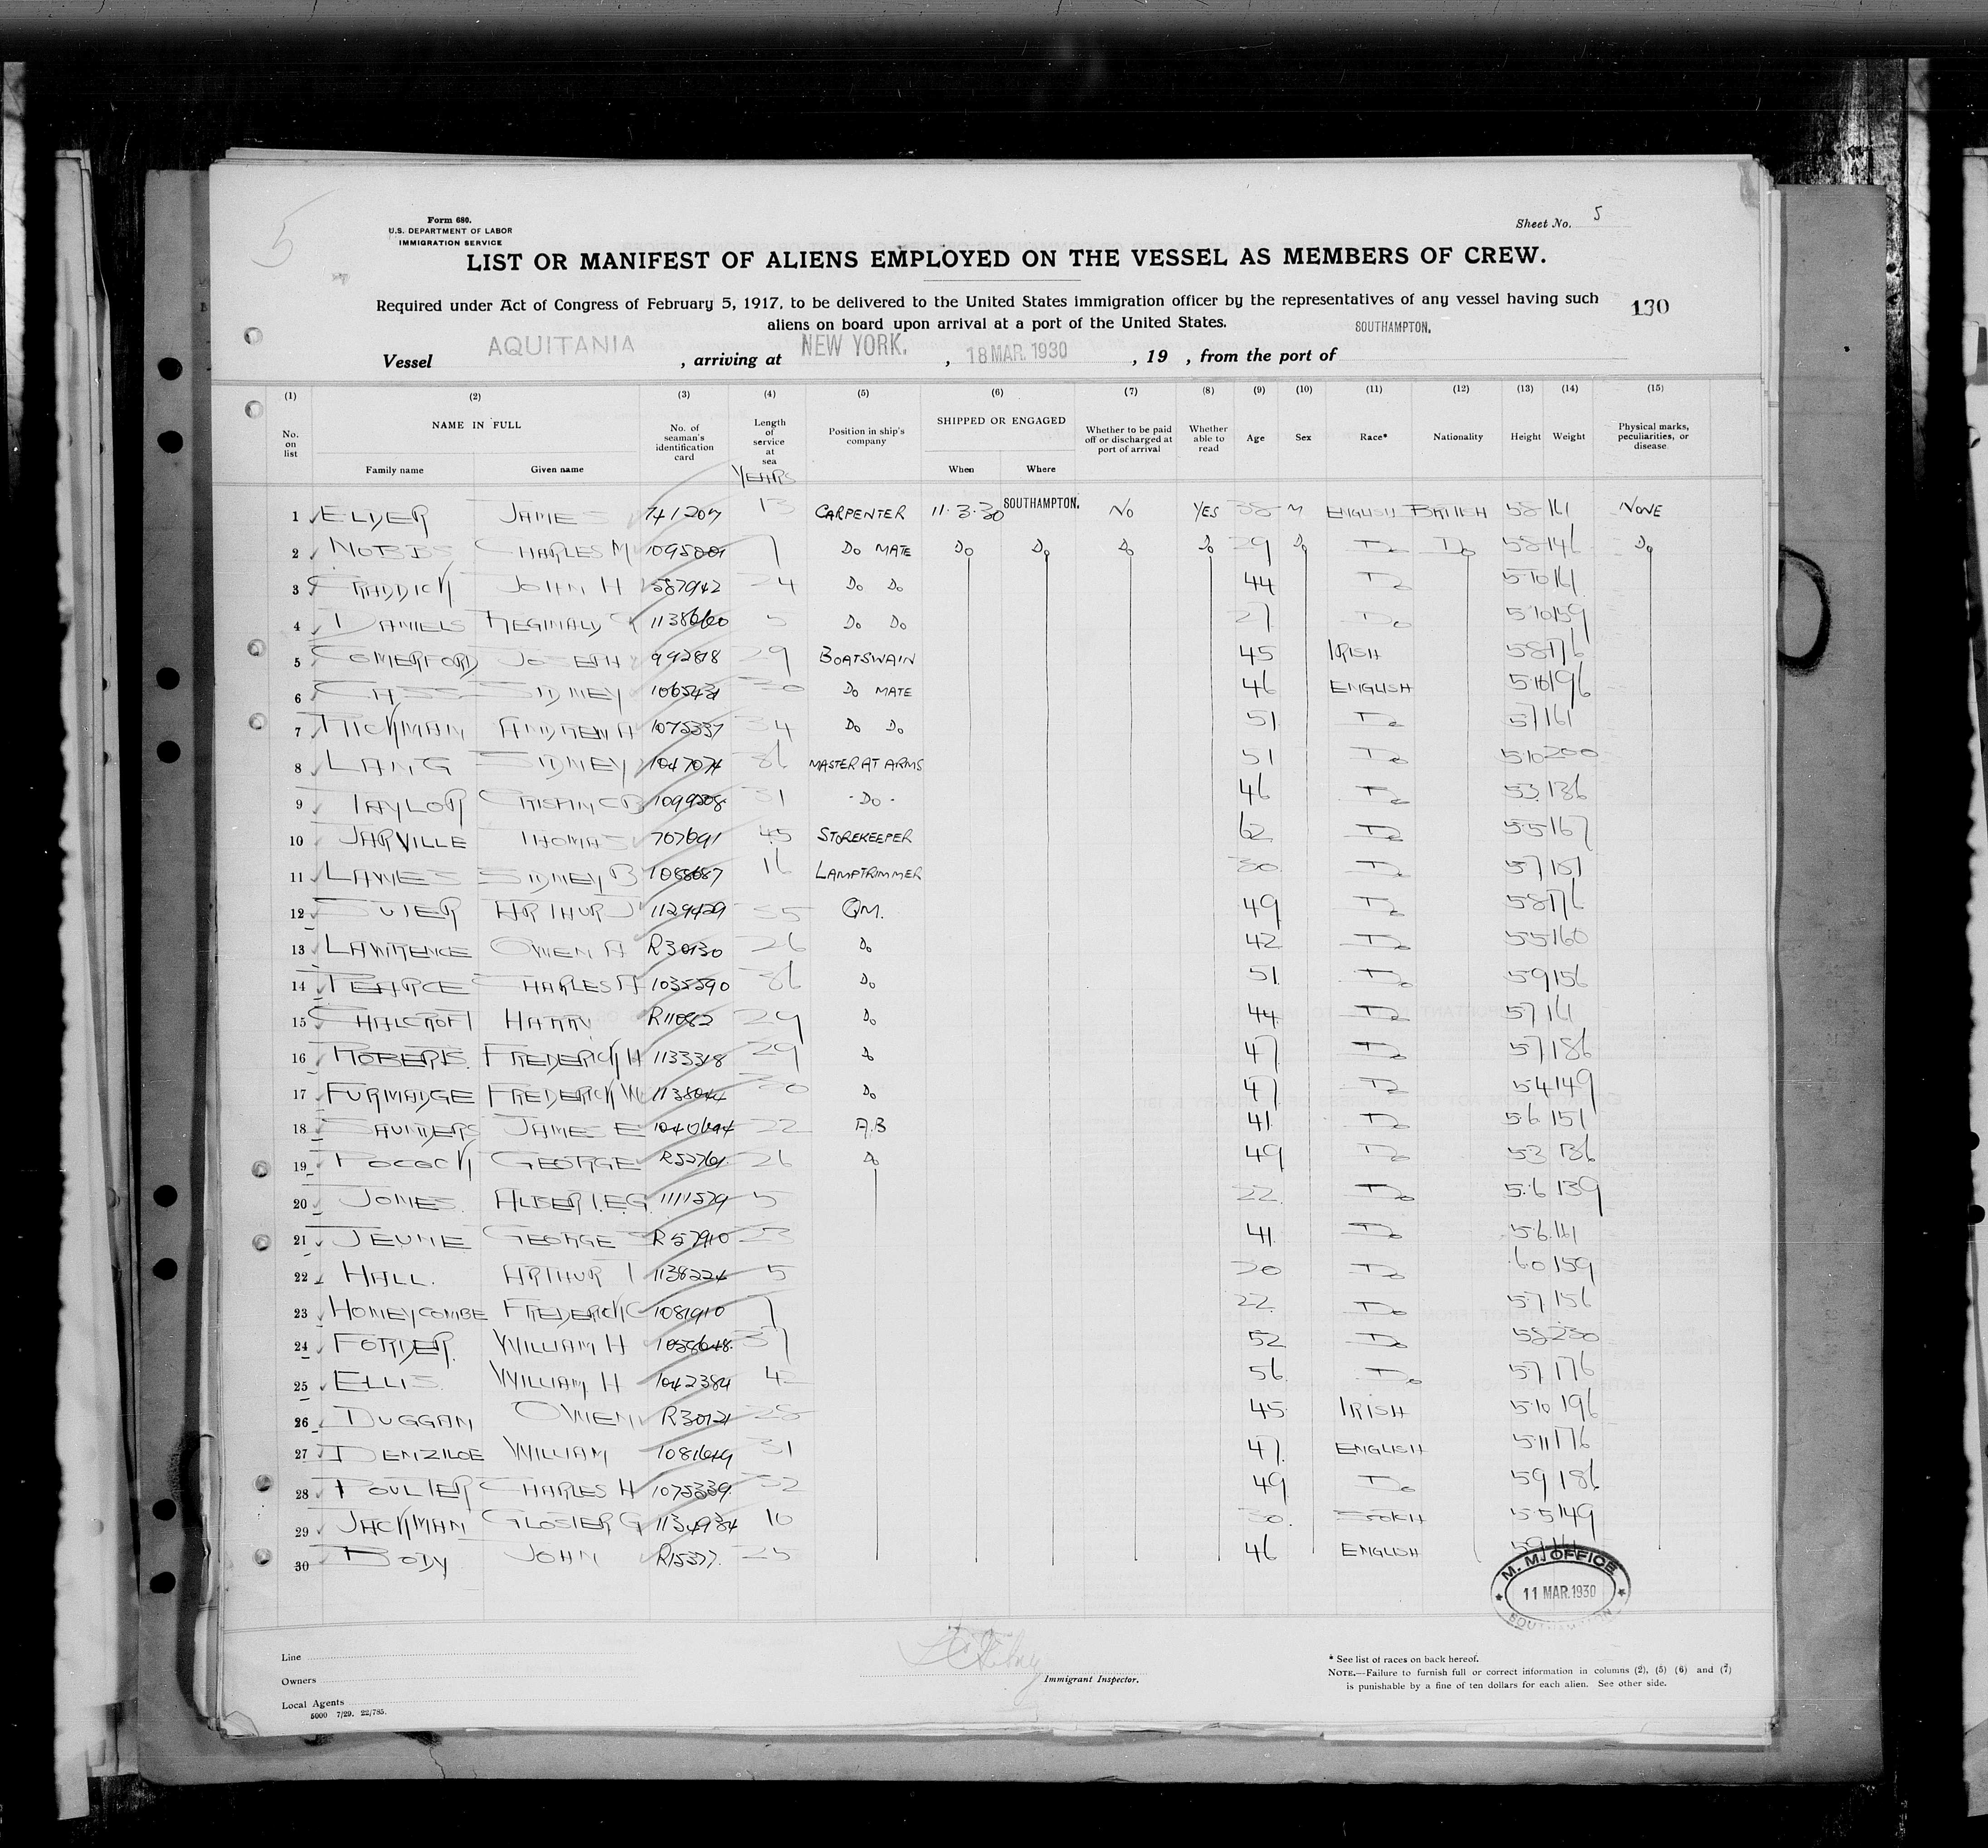 5
Form 680.
U.S. DEPARTMENT OF LABOR
IMMIGRATION SERVICE
Sheet No. 5
LIST OR MANIFEST OF ALIENS EMPLOYED ON THE VESSEL AS MEMBERS OF CREW.
Required under Act of Congress of February 5, 1917, to be delivered to the United States immigration officer by the representatives of any vessel having such
aliens on board upon arrival at a port of the United States.
130
Vessel AQUITANIA, arriving at NEW YORK., 18 MAR. 1930, 19 , from the port of SOUTHAMPTON.
(1) (2) (3) (4) (5) (6) (7) (8) (9) (10) (11) (12) (13) (14) (15)
No. on list NAME IN FULL Family name Given name No. of seaman's identification card Length of service at sea YEARS Position in ship's company SHIPPED OR ENGAGED When Where Whether to be paid off or discharged at port of arrival Whether able to read Age Sex Race* Nationality Height Weight Physical marks, peculiarities, or disease
1 ELDER JAMES 741207 13 CARPENTER 11.3.30 SOUTHAMPTON. NO YES 38 M ENGLISH BRITISH 58 161 NONE
2 NOBBS CHARLES M 7 Do MATE Do Do Do Do 29 Do Do Do 58 146 Do
3 CRADDICK JOHN H 587942 24 Do Do 44 Do 510 161
4 DANIELS REGINALD 1138660 5 Do Do 27 Do 510 159
5 COMERFORD JOSEPH 992818 29 BOATSWAIN 45 IRISH 58 176
6 CASS SIDNEY 30 Do MATE 46 ENGLISH 510 196
7 RICKMAN ANDREW A 1075337 34 Do Do 51 Do 57 161
8 LANG SIDNEY 1047074 36 MASTER AT ARMS 51 Do 510 200
9 TAYLOR 31 Do 46 Do 53 136
10 JARVILLE THOMAS 707691 45 STOREKEEPER 62 Do 55 167
11 LAWES SIDNEY B 16 LAMPTRIMMER 30 Do 57 151
12 SUTER ARTHUR J 1129429 35 QM. 49 Do 58 176
13 LAWRENCE OWEN A R30130 26 Do 42 Do 55 160
14 PEARCE CHARLES A 1035590 36 Do 51 Do 59 156
15 CHALCROFT HARRY R11082 29 Do 44 Do 57 161
16 ROBERTS. FREDERICK H 1133318 29 Do 47 Do 57 186
17 FURMADGE FREDERICK W 1138044 30 Do 47 Do 54 149
18 SAUNDERS JAMES E 22 A.B 41 Do 5.6 151
19 POCOCK GEORGE R52761 26 Do 49 Do 53 136
20 JONES. ALBERT.E.G. 1111579 5 22. Do 5.6 139
21 JEUNE GEORGE R57910 23 41 Do 5.6 161
22 HALL. ARTHUR 1138224 5 30 Do 6.0 159
23 HONEYCOMBE FREDERICK C 1081910 7 22. Do 57 156
24 FORDER. WILLIAM H 1058648 37 52 Do 58 230
25 ELLIS WILLIAM H 1042384 56 Do 57 176
26 DUGGAN OWEN R30121 28 45 IRISH 5.10 196
27 DENZILOE WILLIAM 1081649 31 47 ENGLISH 511 176
28 POULTER CHARLES H 1075339 32 49 Do 59 186
29 JACKMAN GLOSTER G 1134934 10 30. 5.5 149
30 BODY JOHN R15377. 25 46 ENGLISH 59
M.M. OFFICE
11 MAR. 1930
SOUTHAMPTON
Line
Owners
Local Agents
5000 7/29. 22/785.
Immigrant Inspector.
* See list of races on back hereof.
NOTE.—Failure to furnish full or correct information in columns (2), (5) (6) and (7)
is punishable by a fine of ten dollars for each alien. See other side.